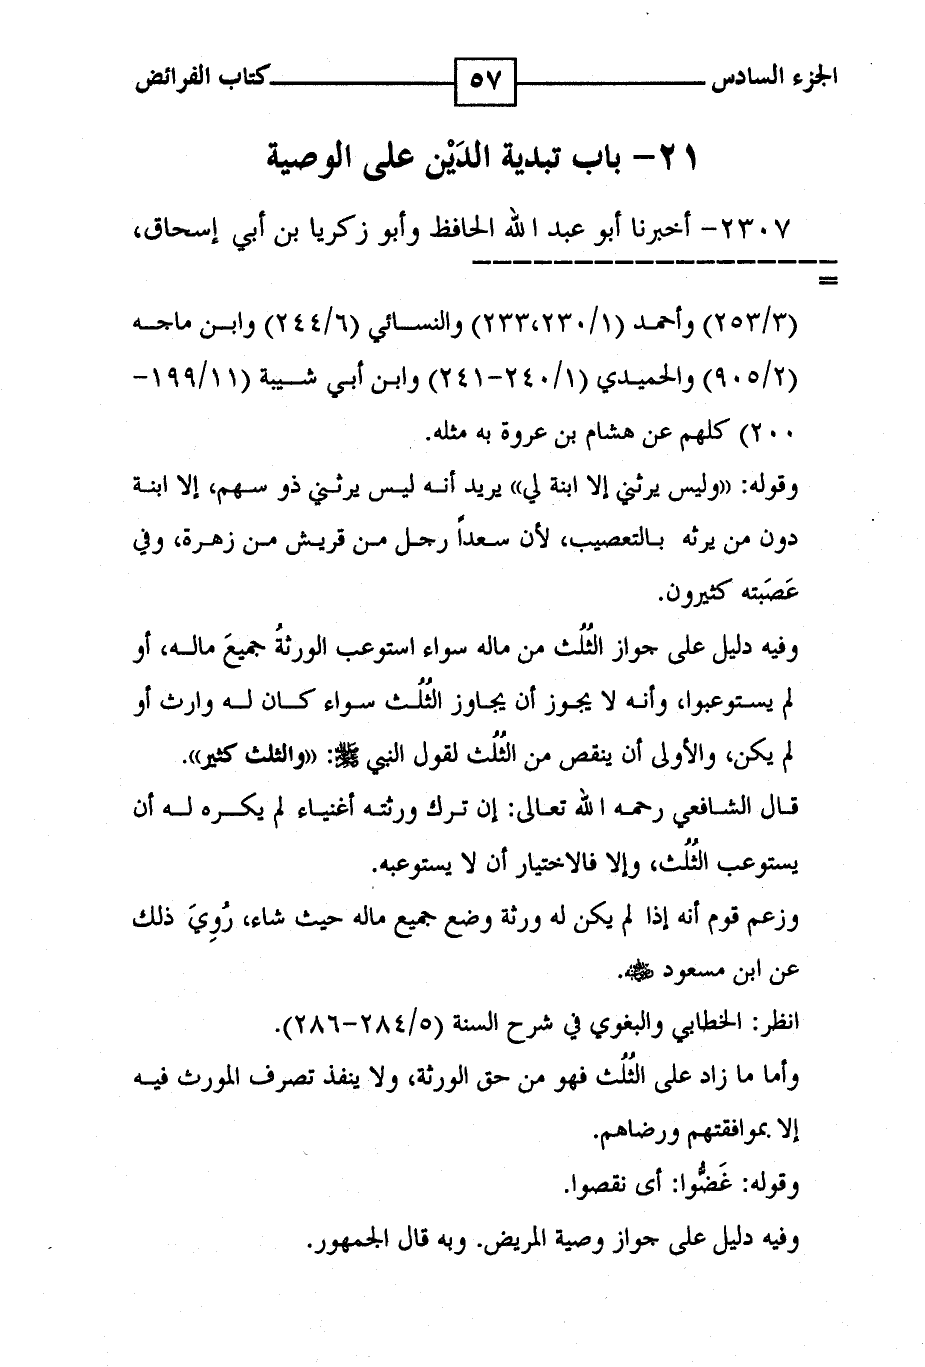 الجزء السادس ٥٧ كتاب الفرائض
٢١- باب تبدية الدَيْن على الوصية
٢٣٠٧- أخبرنا أبو عبد الله الحافظ وأبو زكريا بن أبي إسحاق،
=
(٢٥٣/٣) وأحمد (٢٣٣،٢٣٠/١) والنسائي (٢٤٤/٦) وابن ماجه
(٩٠٥/٢) والحميدي (٢٤٠/١-٢٤١) وابن أبي شيبة (١٩٩/١١-
٢٠٠) كلهم عن هشام بن عروة به مثله.
وقوله: «وليس يرثني إلا ابنة لي» يريد أنه ليس يرثني ذو سهم، إلا ابنة
دون من يرثه بالتعصيب، لأن سعداً رجل من قريش من زهرة، وفي
عَصَبته كثيرون.
وفيه دليل على جواز الثُلُث من ماله سواء استوعب الورثةُ جميعَ ماله، أو
لم يستوعبوا، وأنه لا يجوز أن يجاوز الثُلُث سواء كان له وارث أو
لم يكن، والأولى أن ينقص من الثُلُث لقول النبي ﷺ: «والثلث كثير».
قال الشافعي رحمه الله تعالى: إن ترك ورثته أغنياء لم يكره له أن
يستوعب الثُلُث، وإلا فالاختيار أن لا يستوعبه.
وزعم قوم أنه إذا لم يكن له ورثة وضع جميع ماله حيث شاء، رُوِيَ ذلك
عن ابن مسعود رضي الله عنه.
انظر: الخطابي والبغوي في شرح السنة (٢٨٤/٥-٢٨٦).
وأما ما زاد على الثُلُث فهو من حق الورثة، ولا ينفذ تصرف المورث فيه
إلا بموافقتهم ورضاهم.
وقوله: غَضُّوا: أى نقصوا.
وفيه دليل على جواز وصية المريض. وبه قال الجمهور.